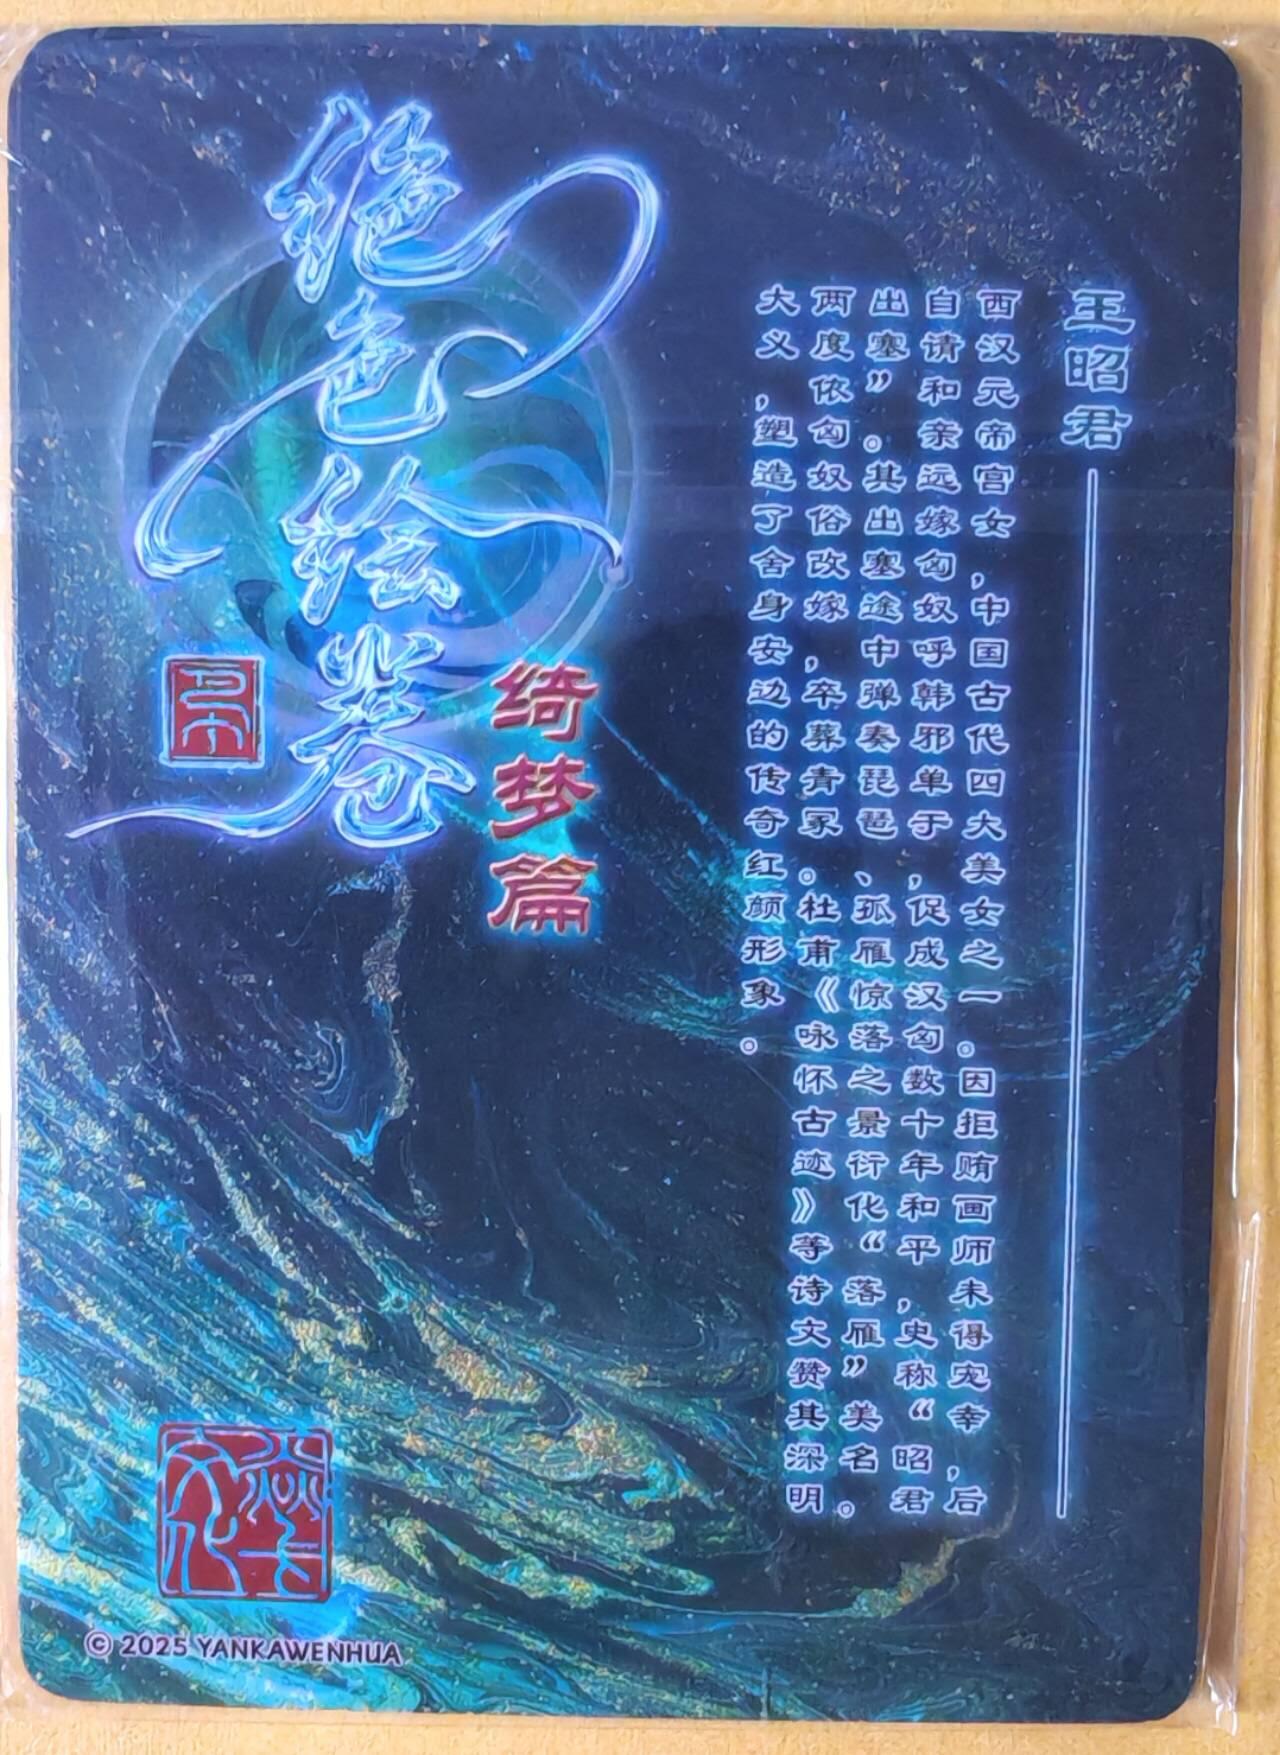 王昭君
西汉元帝宫女，中国古代四大美女之一。因拒贿画师未得宠幸，后
自请和亲远嫁匈奴呼韩邪单于，促成汉匈数十年和平，史称“昭君
出塞”。其出塞途中弹奏琵琶、孤雁惊落之景衍化“落雁”美名。
两度侬匈奴俗改嫁，卒葬青冢。杜甫《咏怀古迹》等诗文赞其深明
大义，塑造了舍身安边的传奇红颜形象。
绝色绘卷
绮梦篇
© 2025 YANKAWENHUA